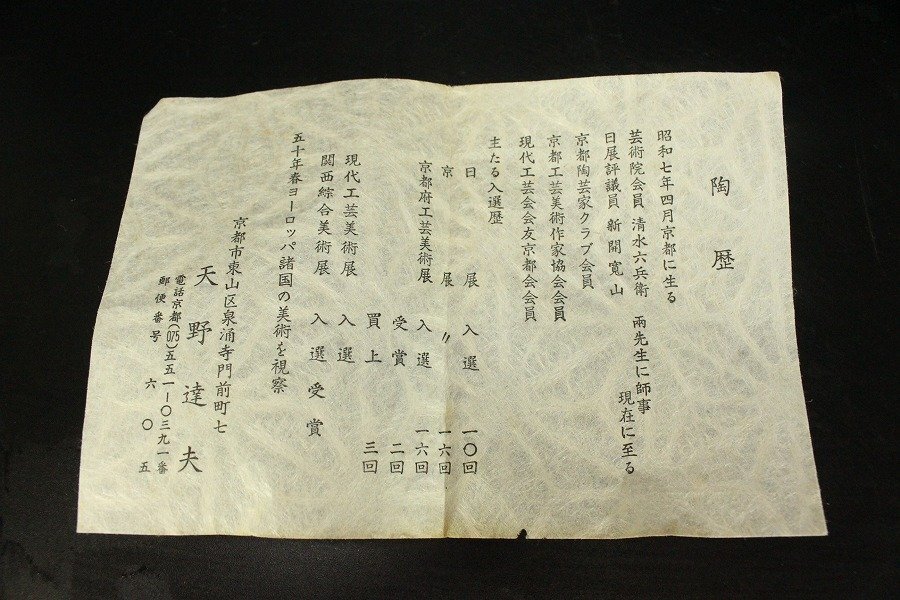 陶歴
昭和七年四月京都に生る
芸術院会員 清水六兵衛 両先生に師事
日展評議員 新開寛山 現在に至る
京都陶芸家クラブ会員
京都工芸美術作家協会会員
現代工芸会会友京都会会員
主たる入選歴
日展 入選 一〇回
京展 〃 一六回
京都府工芸美術展 入選 一六回
受賞 二回
買上 三回
現代工芸美術展 入選
関西綜合美術展 入選受賞
五十年春ヨーロッパ諸国の美術を視察
京都市東山区泉涌寺門前町七
天野達夫
電話京都(075)五五一-〇三九一番
郵便番号 六〇五